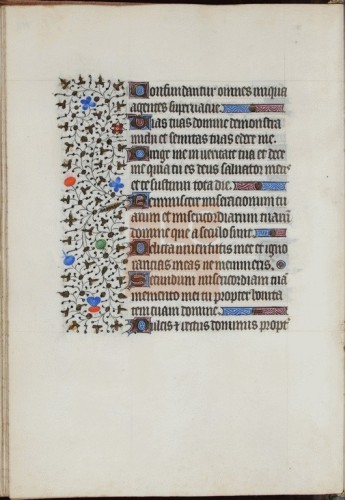 Confundantur omnes iniqua
agentes supervacue.
Vias tuas domine demonstra
michi et semitas tuas edoce me.
Dirige me in veritate tua et doce
me quia tu es deus salvator meus
et te sustinui tota die.
Reminiscere miserationum tu
arum et misericordiarum tuarū
domine que a seculo sunt.
Delicta iuventutis mee et igno
rancias meas ne memineris.
Secundum misericordiam tuā
memento mei tu propter bonita
tem tuam domine.
Dulcis et rectus dominus propt